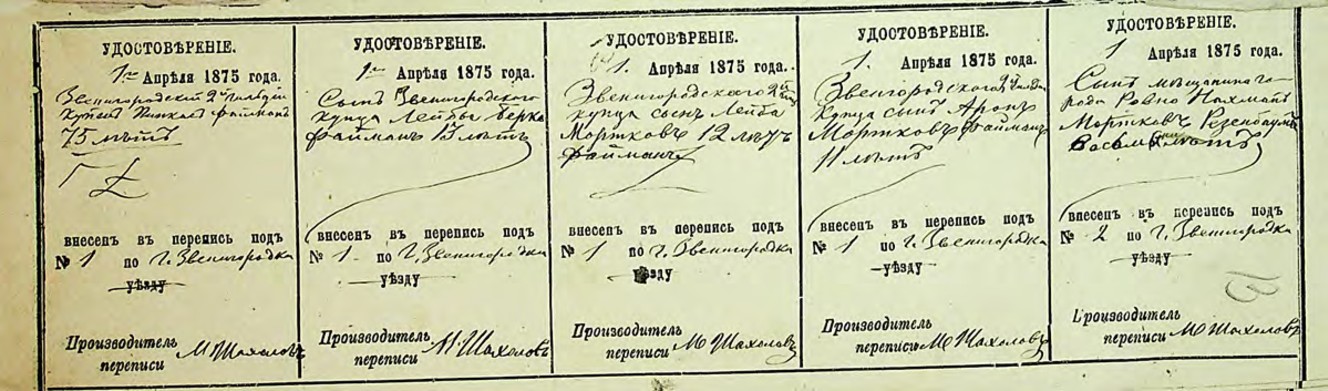 УДОСТОВѢРЕНІЕ.
1го Апрѣля 1875 года.
Звенигородскій 2й Гильдіи
купецъ Файманъ
75 лѣтъ
внесенъ въ перепись подъ
№ 1 по г. Звенигородка
уѣзду
Производитель
переписи М Шахоловъ
УДОСТОВѢРЕНІЕ.
1го Апрѣля 1875 года.
Сынъ Звенигородскаго
купца Лейбы Берко
Файманъ 13 лѣтъ
внесенъ въ перепись подъ
№ 1 по г. Звенигородка
уѣзду
Производитель
переписи М Шахоловъ
УДОСТОВѢРЕНІЕ.
1. Апрѣля 1875 года.
Звенигородскаго 2й
купца сынъ Лейба
Мортковъ 12 лѣтъ
Файманъ
внесенъ въ перепись подъ
№ 1 по г. Звенигородка
уѣзду
Производитель
переписи М Шахоловъ
УДОСТОВѢРЕНІЕ.
1. Апрѣля 1875 года.
Звенгородскаго 2й
купца сынъ Аронъ
Мортковъ Файманъ
11 лѣтъ
внесенъ въ перепись подъ
№ 1 по г. Звенигородка
уѣзду
Производитель
переписи М Шахоловъ
УДОСТОВѢРЕНІЕ.
1 Апрѣля 1875 года.
Сынъ мѣщанина го
рода Ровно Нахманъ
Мортковъ Розенбаумъ
Восьми лѣтъ
внесенъ въ перепись подъ
№ 2 по г. Звенигородка
уѣзду
Производитель
переписи М Шахоловъ